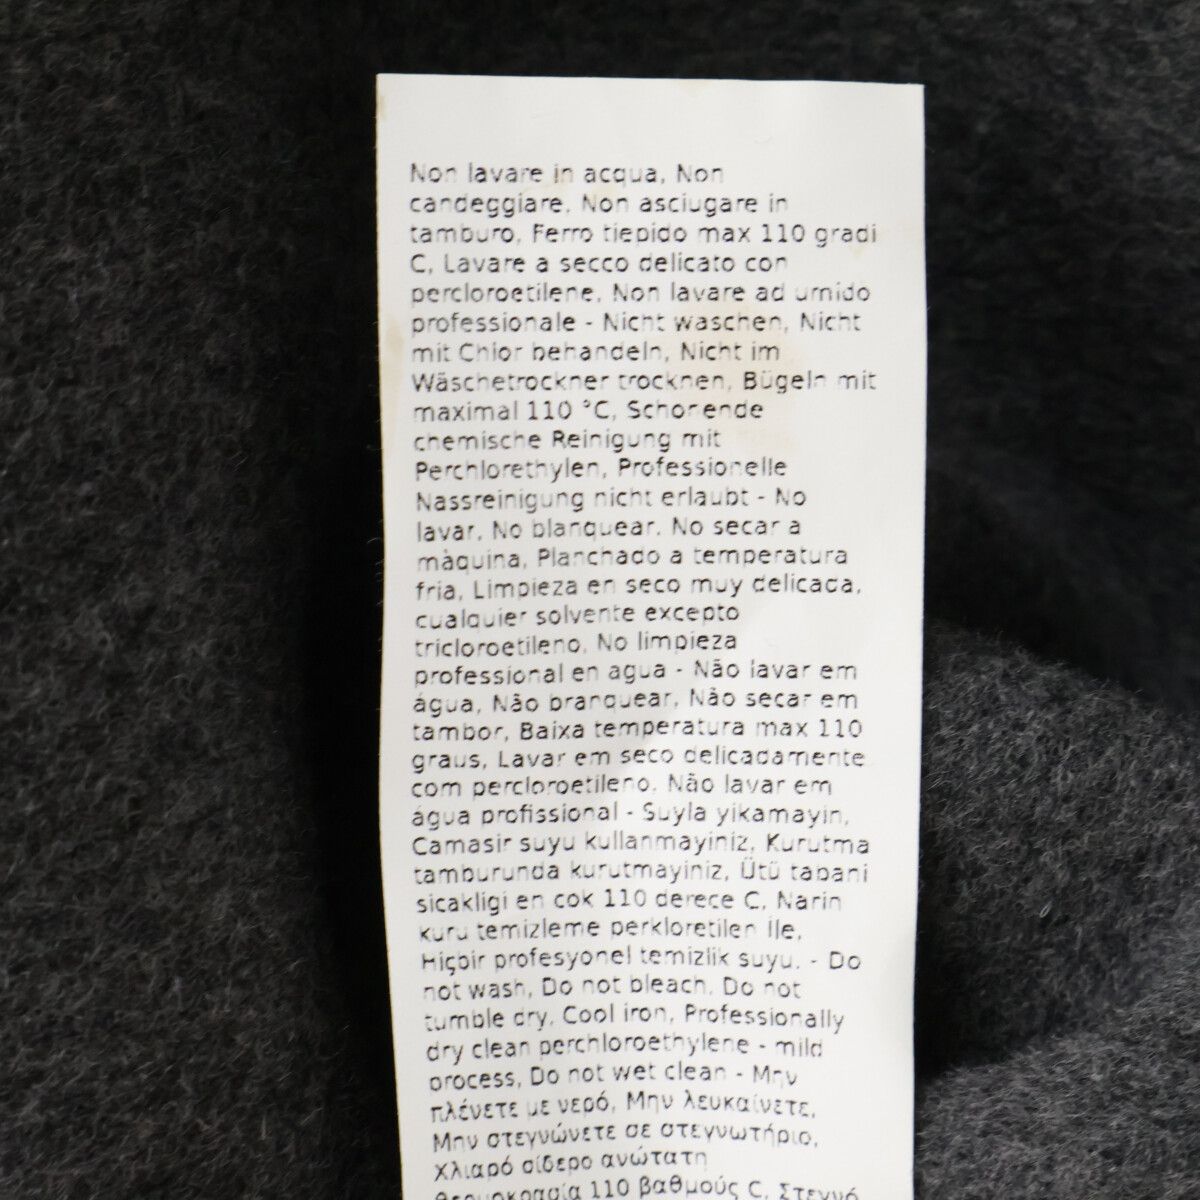 Non lavare in acqua, Non
candeggiare, Non asciugare in
tamburo, Ferro tiepido max 110 gradi
C, Lavare a secco delicato con
percloroetilene, Non lavare ad umido
professionale - Nicht waschen, Nicht
mit Chlor behandeln, Nicht im
Wäschetrockner trocknen, Bügeln mit
maximal 110 °C, Schonende
chemische Reinigung mit
Perchlorethylen, Professionelle
Nassreinigung nicht erlaubt - No
lavar, No blanquear, No secar a
màquina, Planchado a temperatura
fria, Limpieza en seco muy delicada,
cualquier solvente excepto
tricloroetileno, No limpieza
professional en agua - Não lavar em
água, Não branquear, Não secar em
tambor, Baixa temperatura max 110
graus, Lavar em seco delicadamente
com percloroetileno, Não lavar em
água profissional - Suyla yikamayin,
Camasir suyu kullanmayiniz, Kurutma
tamburunda kurutmayiniz, Ütü tabani
sicakligi en cok 110 derece C, Narin
kuru temizleme perkloretilen İle,
Hiçbir profesyonel temizlik suyu. - Do
not wash, Do not bleach, Do not
tumble dry, Cool iron, Professionally
dry clean perchloroethylene - mild
process, Do not wet clean - Μην
πλένετε με νερό, Μην λευκαίνετε,
Μην στεγνώνετε σε στεγνωτήριο,
Χλιαρό σίδερο ανώτατη
θερμοκρασία 110 βαθμούς C, Στεγνό